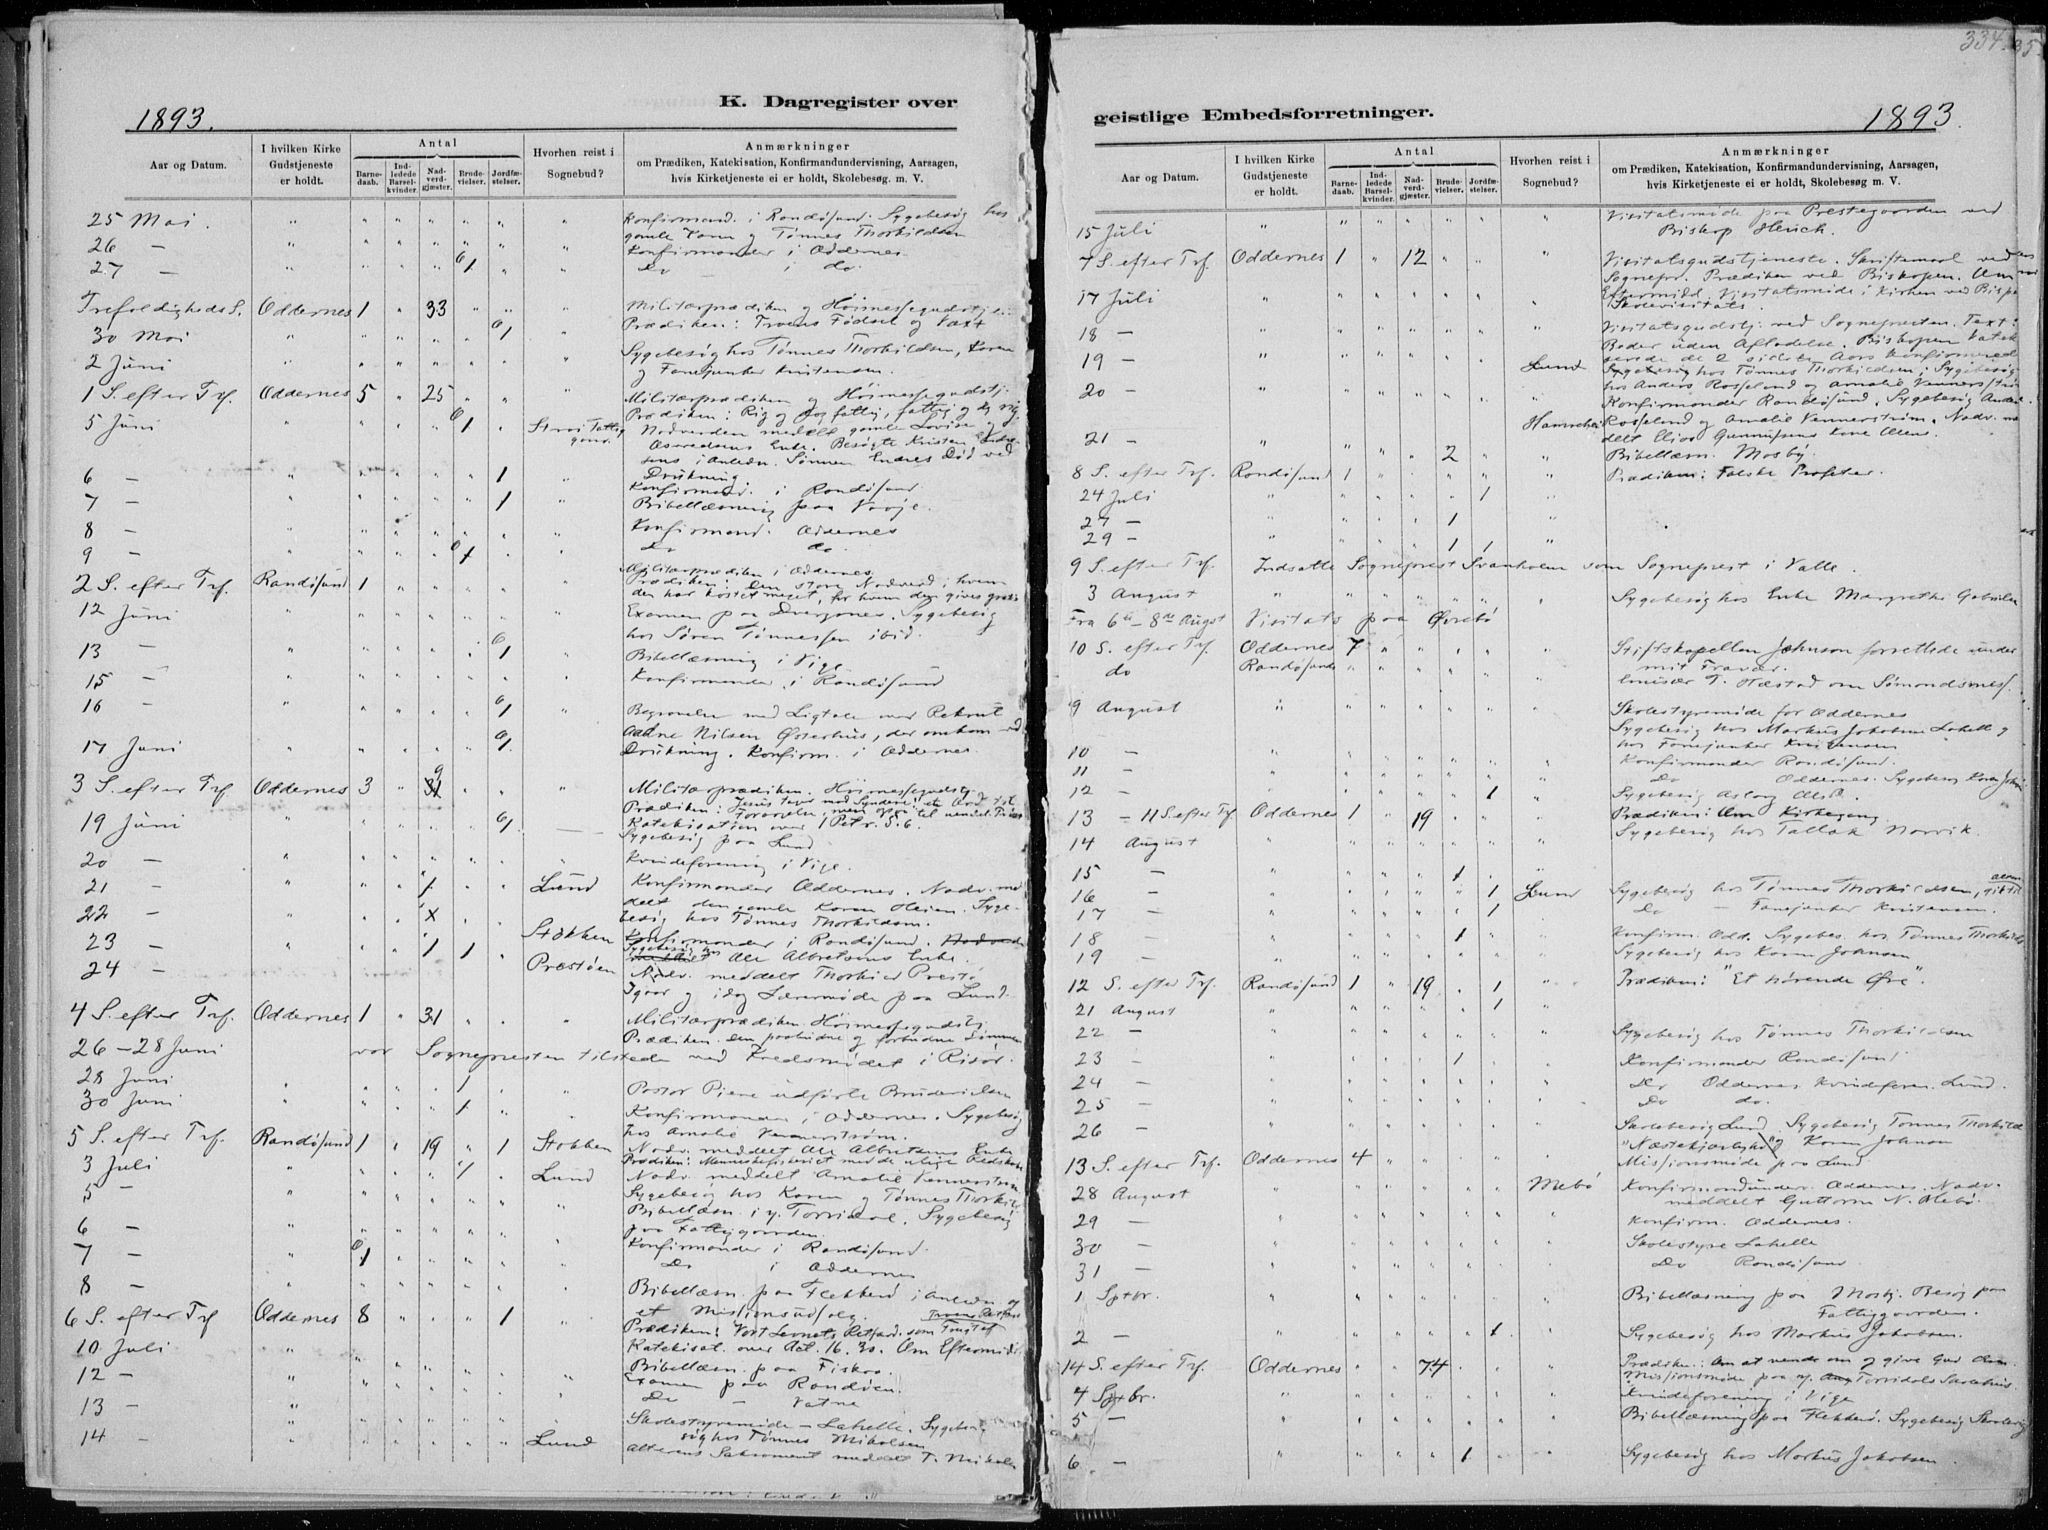 334.
35.
1893.
K. Dagregister over
Aar og Datum.
I hvilken Kirke Gudstjeneste er holdt.
Antal
Barne-daab.
Ind-ledede Barsel-kvinder.
Nad-verd-gjæster.
Brude-vielser.
Jordfæ-stelser.
Hvorhen reist i Sognebud?
Anmærkninger
om Prædiken, Katekisation, Konfirmandundervisning, Aarsagen,
hvis Kirketjeneste ei er holdt, Skolebesøg m. V.
25 Mai. Konfirmand. i Randøsund. Sygebesøg hos
gamle Karen og Tønnes Thorkildsen
26 — Konfirmander i Oddernes.
27 — 1 Do — i do.
Trefoldigheds S. Oddernes 1 33 Militærprædiken og Høimessegudstj.:
Prædiken: Troens Fødsel og Vækst
30 Mai 1
2 Juni Sygebesøg hos Tønnes Thorkildsen, Karen
og Fanejunker Kristensen.
1 S. efter Trf. Oddernes 5 25 Militærprædiken og Høimessegudstj.
Prædiken: Rig og dog fattig, fattig og dog rig.
5 Juni 1 Nadverden meddelt gamle Lovise og
Enke. Besøgte Kristen
sens i Anledn. Sønnen Endres Død ved
Drukning.
6 — 1 Konfirmand. i Randøsund.
7 — 1 Bibellæsning paa Vaaje.
8 — Konfirmand. Oddernes
9 — 1 Do do.
Militærprædiken i Oddernes.
2 S. efter Trf. Randøsund 1 Prædiken: Den store Nadverd; hvem
den har kostet meget, for hvem den gives gratis
12 Juni Examen paa Dvergsnes. Sygebesøg
hos Søren Tønnessen ibid.
13 — 1 Bibellæsning i Vige.
15 — Konfirmander i Randøsund
16 — 1 Begravelse med Ligtale over Rekrut
Aadne Nilsen Østerhus, der omkom ved
17 Juni 1 Drukning. Konfirm. i Oddernes.
3 S. efter Trf. Oddernes 3 Militærprædiken. Høimessegudstj.
Prædiken: Jesus taver mod Syndere: et Ord til
19 Juni 1 Katekisation over 1 Petr. 5. 6.
Sygebesøg paa Lund
20 — Kvindeforening i Vige.
21 — 1 Lund Konfirmander Oddernes. Nadv. med
delt den gamle Karen Heien. Syge-
22 — x besøg hos Tønnes Thorkildsen.
23 — 1 1 Stokken Konfirmander i Randøsund.
Sygebesøg hos Ole Albretsens Enke.
24 — Prestøen Nadv. meddelt Thorkild Prestø
Igaar og idag Lærermøde paa Lund.
4 S. efter Trf. Oddernes 1 31 Militærprædiken. Høimessegudstj.
Prædiken. Den paabudne og forbudne Dømmen
26 – 28 Juni var Sognepresten tilstede ved Kredsmødet i Risør.
28 Juni 1 Pastor Piene udførte Brudevielsen
30 Juni 1 Konfirmander i Oddernes. Sygebesøg
hos Amalie Vennerstrøm.
5 S. efter Trf. Randøsund 1 19 1 Stokken Nadv. meddelt Ole Albretsens Enke
Prædiken: Menneskefiskeriet med de ulige Redskaber
3 Juli 1 Lund Nadv. meddelt Amalie Vennerstrøm
5 — Sygebesøg hos Karen og Tønnes Thorkild.
Bibellæsn. i y. Torridal. Sygebesøg
6 — paa Fattiggaarden.
7 — 1 Konfirmander i Randøsund.
Do i Oddernes
8 — Bibellæsn. paa Flekkerø i Anledn. af
et Missionsudsalg.
6 S. efter Trf. Oddernes 8 1 Prædiken: Vort Levnets Retfærd. som
10 Juli Katekisat. over Act. 16. 30. Om Eftermidd.
Bibellæsn. paa Fiskaa.
12 — Examen paa Randøen.
13 — Do — Vatne
Skolestyremøde — Lahelle. Sygebe-
14 — Lund søg hos Tønnes Mikalsen
Alterens Sakrament meddelt T. Mikals.
geistlige Embedsforretninger.
1893.
Aar og Datum.
I hvilken Kirke Gudstjeneste er holdt.
Antal
Barne-daab.
Ind-ledede Barsel-kvinder.
Nad-verd-gjæster.
Brude-vielser.
Jordfæ-stelser.
Hvorhen reist i Sognebud?
Anmærkninger
om Prædiken, Katekisation, Konfirmandundervisning, Aarsagen,
hvis Kirketjeneste ei er holdt, Skolebesøg m. V.
15 Juli Visitatsmøde paa Prestegaarden ved
Biskop Heuch.
7 S. efter Trf. Oddernes 1 12 Visitatsgudstjeneste. Skriftemaal ved
Sognepr. Prædiken ved Biskopen. Om
Eftermidd. Visitatsmøde i Kirken ved Bispen
17 Juli Skolevisitats.
18 — Visitatsgudstj. ved Sognepresten. Text:
Beder uden Afladelse. Biskopen Katek
serede de 2 sidste Aars Konfirmerede
19 — Lund Sygebesøg hos Tønnes Thorkildsen; Sygebesøg
20 — hos Anders Rosseland og Amalie Vennerstrøm
Konfirmander Randøsund. Sygebesøg Anders
21 — Rosseland og Amalie Vennerstrøm. Nadv. med
delt Elias Gunnufsens Kone
2 Bibellæsn. Mosby.
8 S. efter Trf. Randøsund 1 Prædiken: Falske Profeter.
24 Juli 1
27 — 1
29 — 1 1
9 S. efter Trf. Indsatte Sogneprest Svanholm som Sogneprest i Valle.
3 August Sygebesøg hos Enke Margrethe Gabrielsen
Fra 6te – 8de August Visitats paa Øvrebø
10 S. efter Trf. Oddernes 7 Stiftskapellan Johnson forrettede under
mit Fravær.
do Randøsund Emisær T. Hæstad om
9 August Skolestyremøde for Oddernes
Sygebesøg hos Markus Jakobsen Lahelle og
10 — hos Fanejunker Kristensen
11 — Konfirmander Randøsund.
Do Oddernes. Sygebesøg Karen Johnsen
12 — 1 Sygebesøg Aslaug
13 — 11 S. efter Trf Oddernes 1 19 Prædiken: Om Kirkegang
14 August Sygebesøg hos Tallak Narvik.
15 — 1
16 — 1 Lund Sygebesøg hos Tønnes Thorkildsen,
17 — 1 Do — Fanejunker Kristensen.
18 — 1 Konfirm. Odd. Sygebes. hos Tønnes Thorkilds
19 — Sygebesøg hos Karen Johnsen
12 S. efter Trf. Randøsund 1 19 1 Prædiken: "Et hørende Øre".
21 August
22 — Sygebesøg hos Tønnes Thorkildsen
23 — 1 Konfirmander Randøsund
24 — Do Oddernes. Kvindeforen. Lund.
25 — Do do.
26 — Skolebesøg Lund. Sygebesøg Tønnes Thorkilds
"Næstekjærlighed" Karen Johnsen
13 S. efter Trf. Oddernes 4 Missionsmøde paa Lund
28 August Mebø Konfirmandunder. Oddernes. Nadv.
meddelt Guttorm N. Mebø.
29 — Konfirm. Oddernes.
30 — Skolestyre Lahelle
31 — Do Randøsund
1 Sptbr. Bibellæsning paa Mosby. Besøg paa
Fattiggaarden.
2 — 1 Sygebesøg hos Markus Jakobsen.
14 S. efter Trf. Oddernes 74 Prædiken: Om at vende om og give Gud Æren.
Missionsmøde paa y. Torridals Skolehus.
4 Sptbr. Kvindeforening i Vige
5 — Bibellæsning paa Flekkerø. Sygebesøg
6 — 1 Sygebesøg hos Markus Jakobsen.